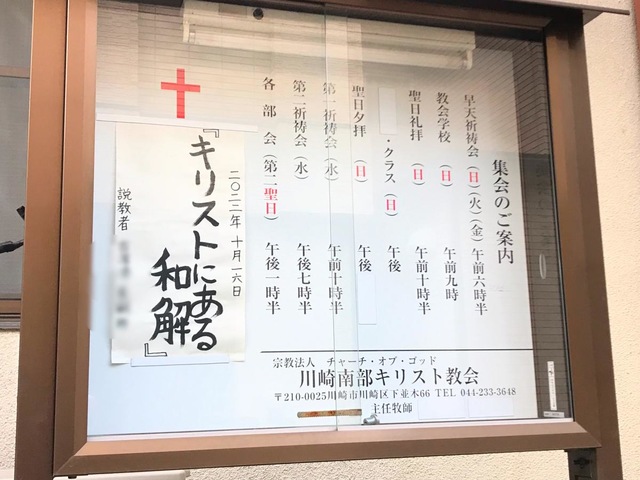 集会のご案内
早天祈祷会(日)(火)(金)午前六時半
教会学校(日)午前九時
聖日礼拝(日)午前十時半
・クラス(日)午後
聖日夕拝(日)午後
第一祈祷会(水)午前十時半
第二祈祷会(水)午後七時半
各部会(第二聖日)午後一時半
二〇二二年十月一六日
『キリストにある
和解』
説教者
宗教法人 チャーチ・オブ・ゴッド
川崎南部キリスト教会
〒210-0025川崎市川崎区下並木66 TEL 044-233-3648
主任牧師